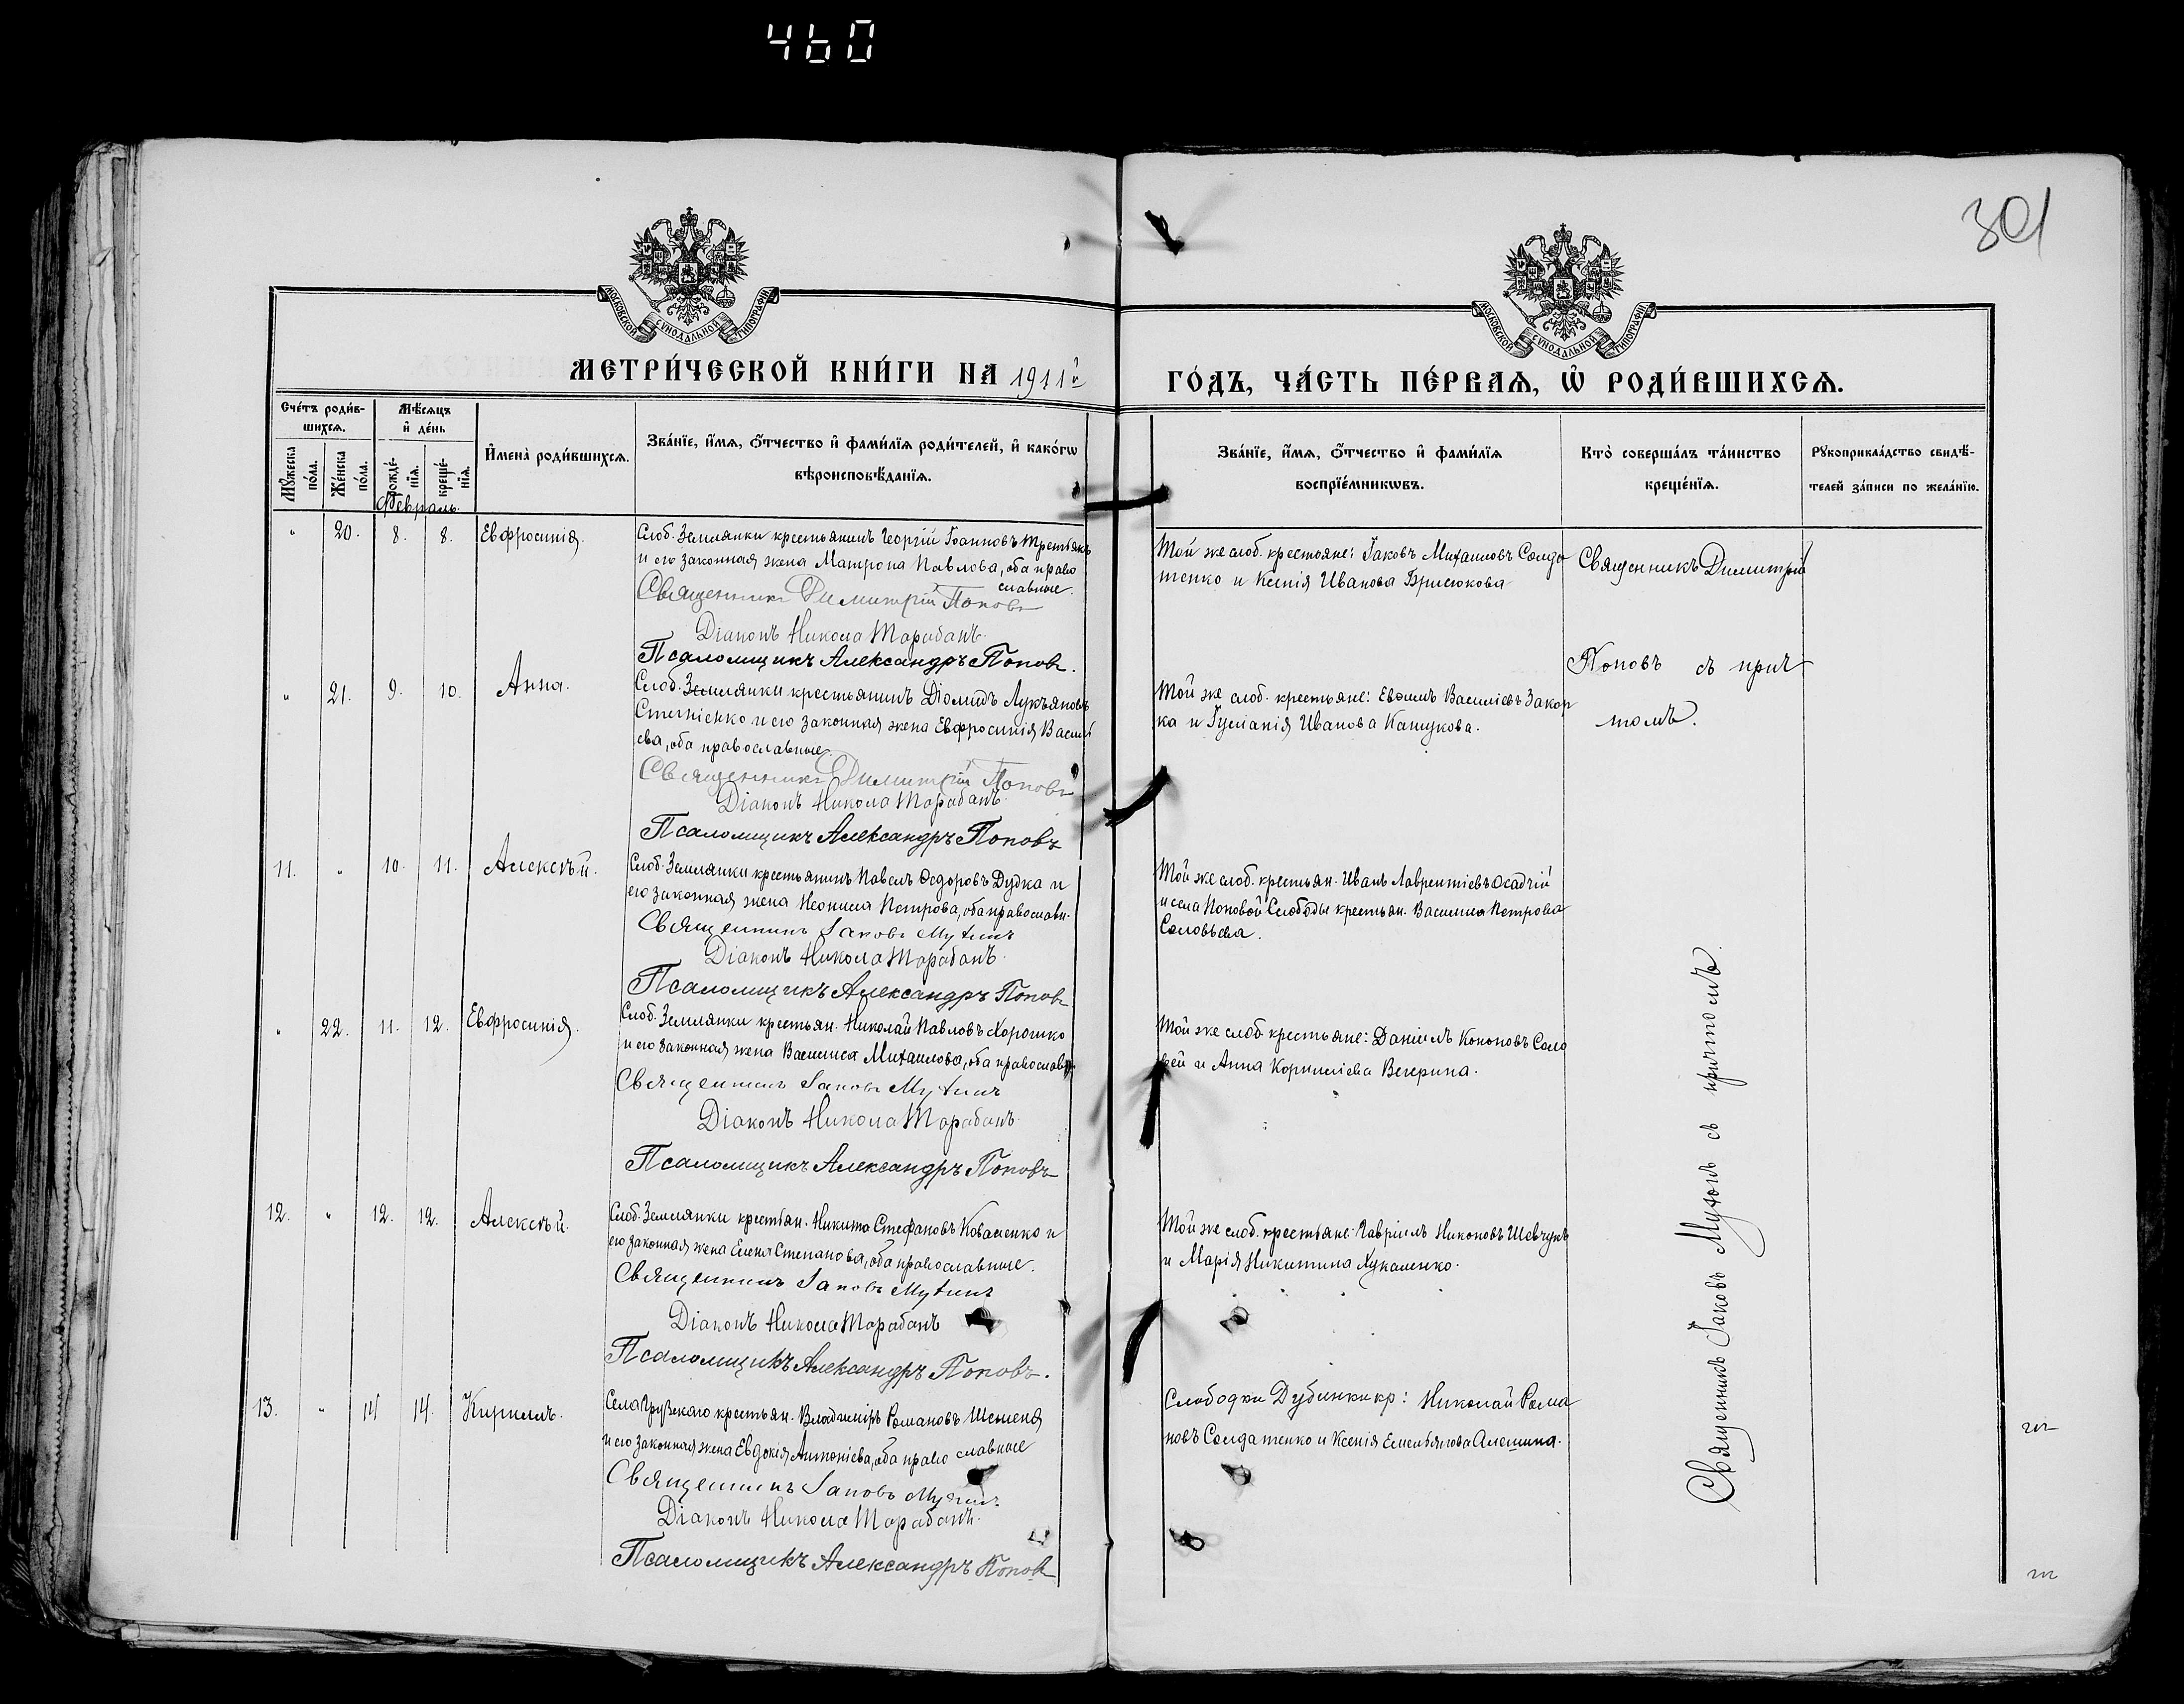 460
301
МОСКОВСКОЙ СУНОДАЛЬНОЙ ТИПОГРАФІИ
МОСКОВСКОЙ СУНОДАЛЬНОЙ ТИПОГРАФІИ
МЕТРИ́ЧЕСКОЙ КНИ́ГИ НА 1911й
ГО́ДЪ, ЧА́СТЬ ПЕ́РВАѦ, Ѽ РОДИ́ВШИХСѦ.
Сче́тъ роди́вшихсѧ.
Мѣ́сѧцъ и҆ де́нь
Мꙋ́жеска по́ла.
Же́нска по́ла.
рожде́нїѧ.
креще́нїѧ.
И҆мена̀ роди́вшихсѧ.
Зва́нїе, и҆́мѧ, ѻ҆́тчество и҆ фами́лїѧ роди́телей, и҆ како́гѡ
вѣроисповѣ́данїѧ.
Зва́нїе, и҆́мѧ, ѻ҆́тчество и҆ фами́лїѧ
воспрїе́мникѡвъ.
Кто̀ соверша́лъ та́инство
креще́нїѧ.
Рꙋкоприкла́дство свидѣ́-
телей за́писи по жела́нїю.
Февраль.
" 20. 8. 8. Евфросинія.
Слоб. Землянки крестьянинъ Георгій Іоанновъ Третьякъ
и его законная жена Матрона Павлова, оба право
славные.
Священникъ Димитрій Поповъ
Діаконъ Никола Тарабанъ.
Псаломщикъ Александръ Поповъ.
Той же слоб. крестьяне: Іаковъ Михаиловъ Солда
тенко и Ксенія Иванова Брисюкова
Священникъ Димитрій
Поповъ съ прич
томъ.
" 21. 9. 10. Анна.
Слоб. Землянки крестьянинъ Діомидъ Лукъяновъ
и его законная жена Евфросинія Васил
ева, оба православные.
Священникъ Димитрій Поповъ
Діаконъ Никола Тарабанъ.
Псаломщикъ Александръ Поповъ
Той же слоб. крестьяне: Евѳимъ Василіевъ Закор
ка и Іуліанія Иванова
11. " 10. 11. Алексѣй.
Слоб. Землянки крестьянинъ Павелъ Ѳедоровъ Дудка и
его законная жена Неонила Петрова, оба православн.
Священникъ Іаковъ Мухинъ
Діаконъ Никола Тарабанъ.
Псаломщикъ Александръ Поповъ
Той же слоб. крестьян. Иванъ Лаврентіевъ Осадчій
и села Поповой Слободы крестьян. Василиса Петрова
Соловьева.
" 22. 11. 12. Евфросинія.
Слоб. Землянки крестьян. Николай Павловъ Хорошко
и его законная жена Василиса Михаилова, оба православн.
Священникъ Іаковъ Мухинъ
Діаконъ Никола Тарабанъ.
Псаломщикъ Александръ Поповъ
Той же слоб. крестьяне: Даніилъ Кононовъ Соло
вей и Анна Корниліева Вечерина.
12. " 12. 12. Алексѣй.
Слоб. Землянки крестьян. Никита Стефановъ Коваленко и
его законная жена Елена Степанова, оба православные.
Священникъ Іаковъ Мухинъ
Діаконъ Никола Тарабанъ
Псаломщикъ Александръ Поповъ.
Той же слоб. крестьяне: Гавріилъ Никоновъ Шевчукъ
и Марія Никитина Лукаленко.
13. " 14 14. Кириллъ.
Села Грузскаго крестьян. Владиміръ Романовъ
и его законная жена Евдокія Антоніева, оба православные
Священникъ Іаковъ Мухинъ
Діаконъ Никола Тарабанъ.
Псаломщикъ Александръ Поповъ
Слободки Дубинки кр: Николай Рома
новъ Солдатенко и Ксенія Емельянова Алешина.
Священникъ Іаковъ Мухинъ съ причтомъ.